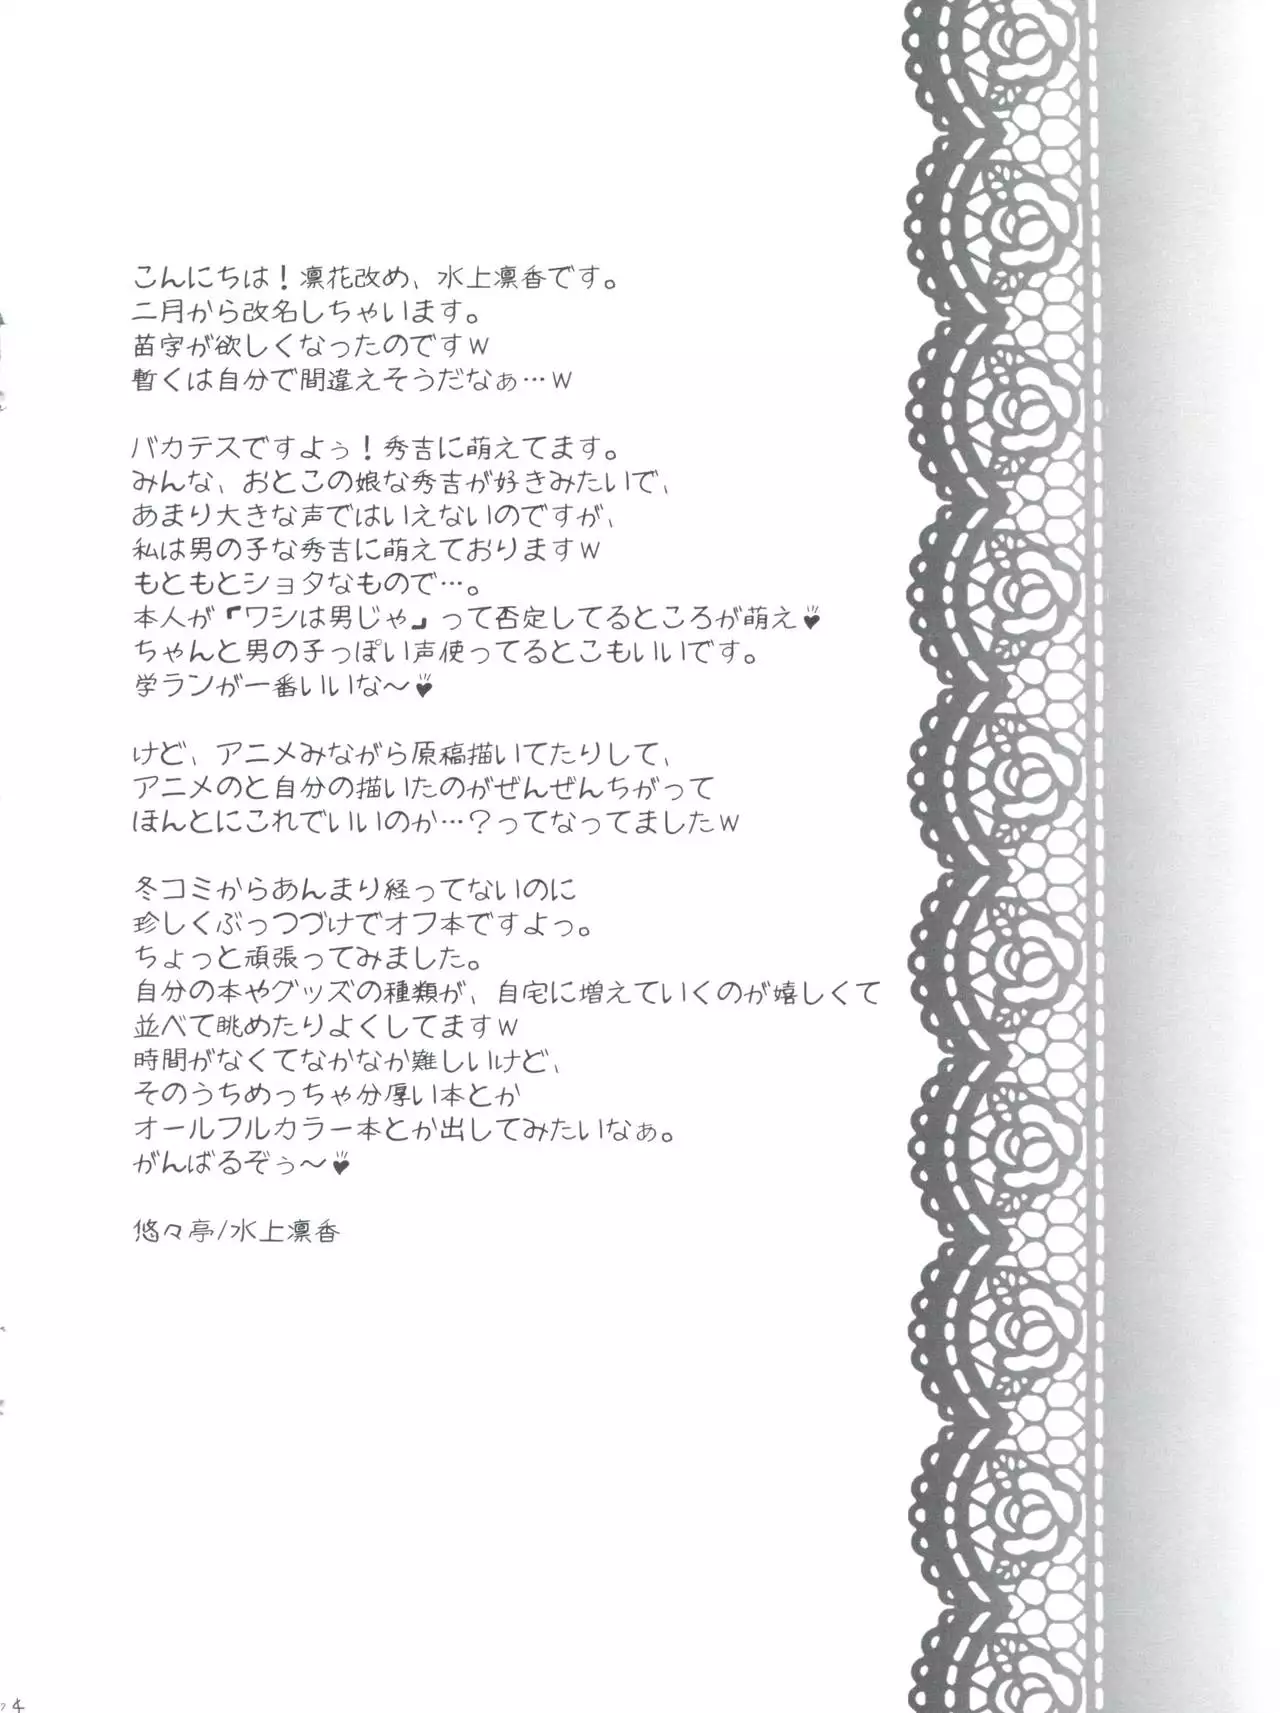 こんにちは！凛花改め、水上凛香です。
二月から改名しちゃいます。
苗字が欲しくなったのですｗ
暫くは自分で間違えそうだなぁ…ｗ
バカテスですよぅ！秀吉に萌えてます。
みんな、おとこの娘な秀吉が好きみたいで、
あまり大きな声ではいえないのですが、
私は男の子な秀吉に萌えておりますｗ
もともとショタなもので…。
本人が「ワシは男じゃ」って否定してるところが萌え♥
ちゃんと男の子っぽい声使ってるとこもいいです。
学ランが一番いいな～♥
けど、アニメみながら原稿描いてたりして、
アニメのと自分の描いたのがぜんぜんちがって
ほんとにこれでいいのか…？ってなってましたｗ
冬コミからあんまり経ってないのに
珍しくぶっつづけでオフ本ですよっ。
ちょっと頑張ってみました。
自分の本やグッズの種類が、自宅に増えていくのが嬉しくて
並べて眺めたりよくしてますｗ
時間がなくてなかなか難しいけど、
そのうちめっちゃ分厚い本とか
オールフルカラー本とか出してみたいなぁ。
がんばるぞぅ～♥
悠々亭/水上凛香